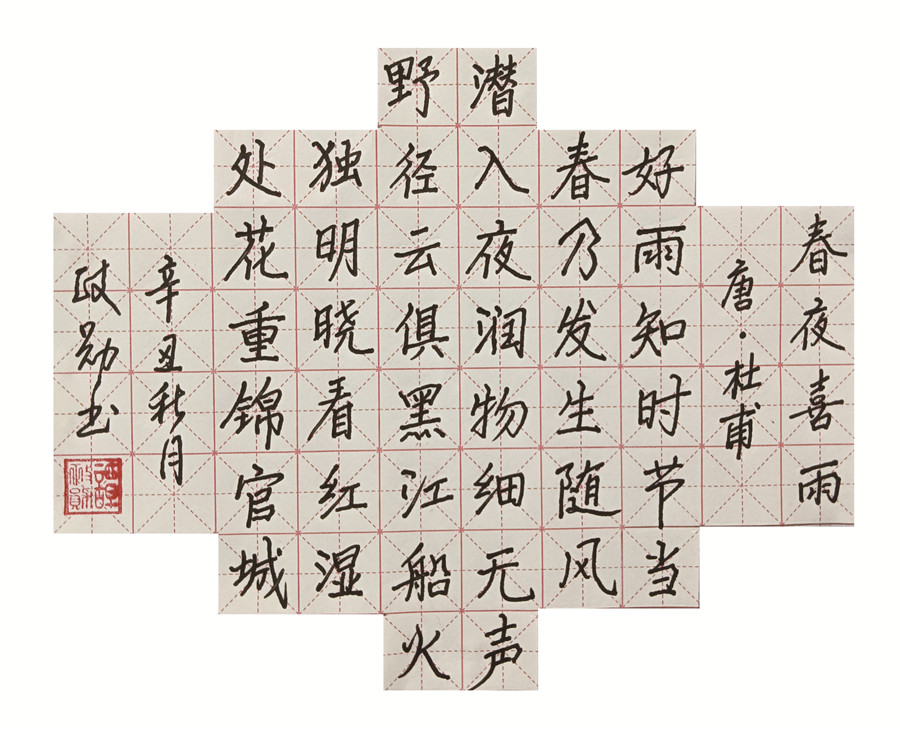 春夜喜雨
唐·杜甫
好雨知时节当
春乃发生随风
潜入夜润物细无声
野径云俱黑江船火
独明晓看红湿
处花重锦官城
辛丑秋月
政勋书